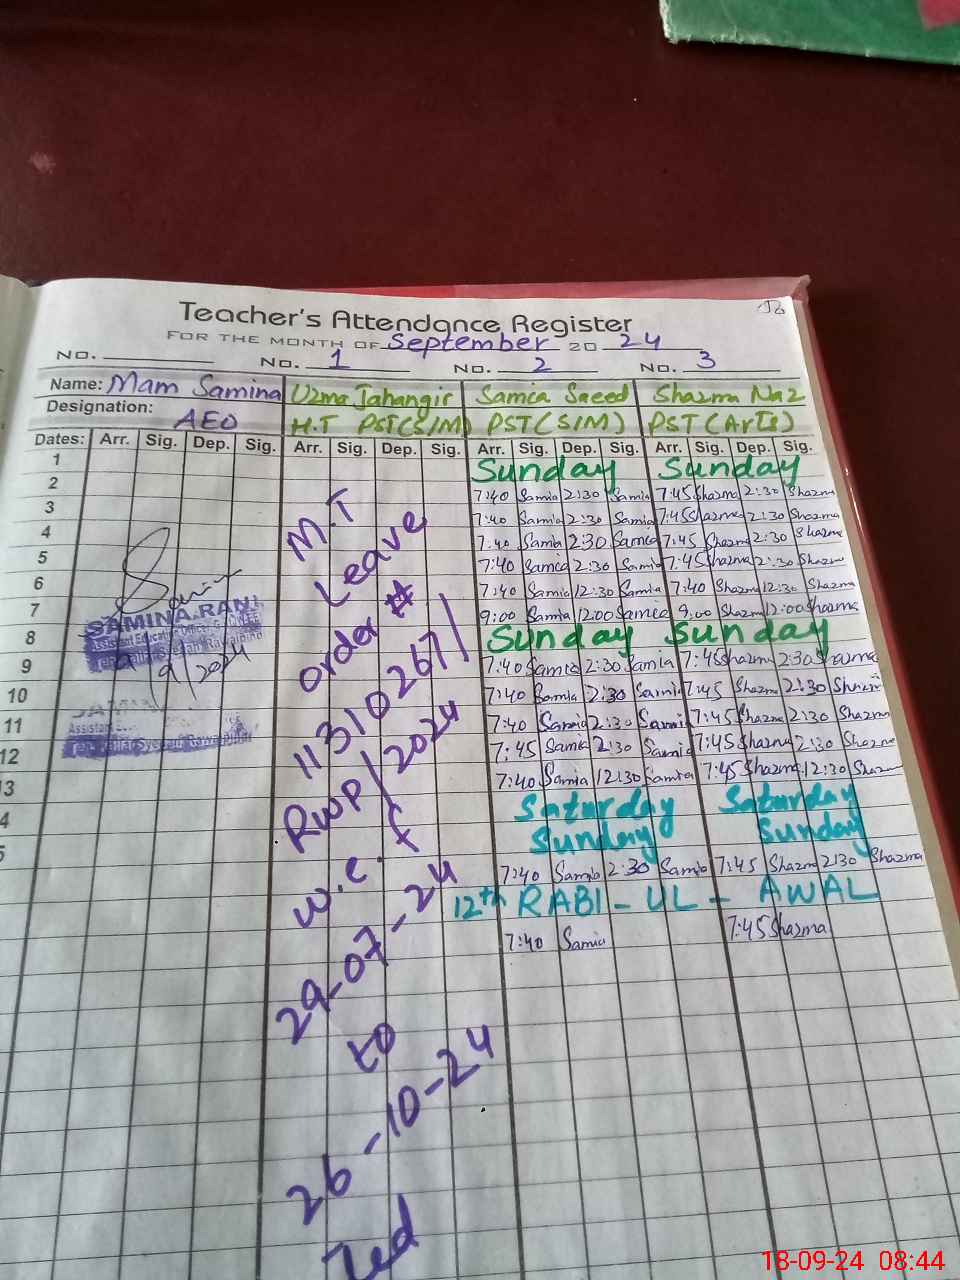 Teacher's Attendance Register
FOR THE MONTH OF September 20 24
No. No. 1 No. 2 No. 3
Name: Mam Samina Uzma Jahangir Samia Saeed Shazma Naz
Designation: AEO H.T PST(S/M) PST(S/M) PST(Arts)
Dates: Arr. Sig. Dep. Sig. Arr. Sig. Dep. Sig. Arr. Sig. Dep. Sig. Arr. Sig. Dep. Sig.
1 Sunday Sunday
2 7:40 Samia 2:30 Samia 7:45 Shazma 2:30 Shazma
3 7:40 Samia 2:30 Samia 7:45 Shazma 2:30 Shazma
4 7:40 Samia 2:30 Samia 7:45 Shazma 2:30 Shazma
5 7:40 Samia 2:30 Samia 7:45 Shazma 2:30 Shazma
6 7:40 Samia 12:30 Samia 7:40 Shazma 12:30 Shazma
7 9:00 Samia 12:00 Samia 9:00 Shazma 12:00 Shazma
8 Sunday Sunday
9 7:40 Samia 2:30 Samia 7:45 Shazma 2:30 Shazma
10 7:40 Samia 2:30 Samia 7:45 Shazma 2:30 Shazma
11 7:40 Samia 2:30 Samia 7:45 Shazma 2:30 Shazma
12 7:45 Samia 2:30 Samia 7:45 Shazma 2:30 Shazma
13 7:40 Samia 12:30 Samia 7:45 Shazma 12:30 Shazma
4 Saturday Saturday
5 Sunday Sunday
7:40 Samia 2:30 Samia 7:45 Shazma 2:30 Shazma
12th RABI-UL-AWAL
7:40 Samia 7:45 Shazma
M.T
Leave
order #
11310267/
RWP/2024
w.e.f
29-07-24
to
26-10-24
SAMINA RANI
Assistant Education Officer
/9/2024
Assistant
18-09-24 08:44